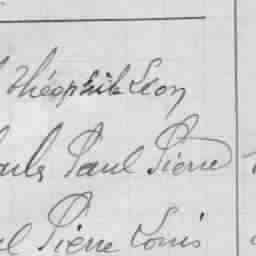 Théophile Léon
Paul Pierre
Pierre Louis